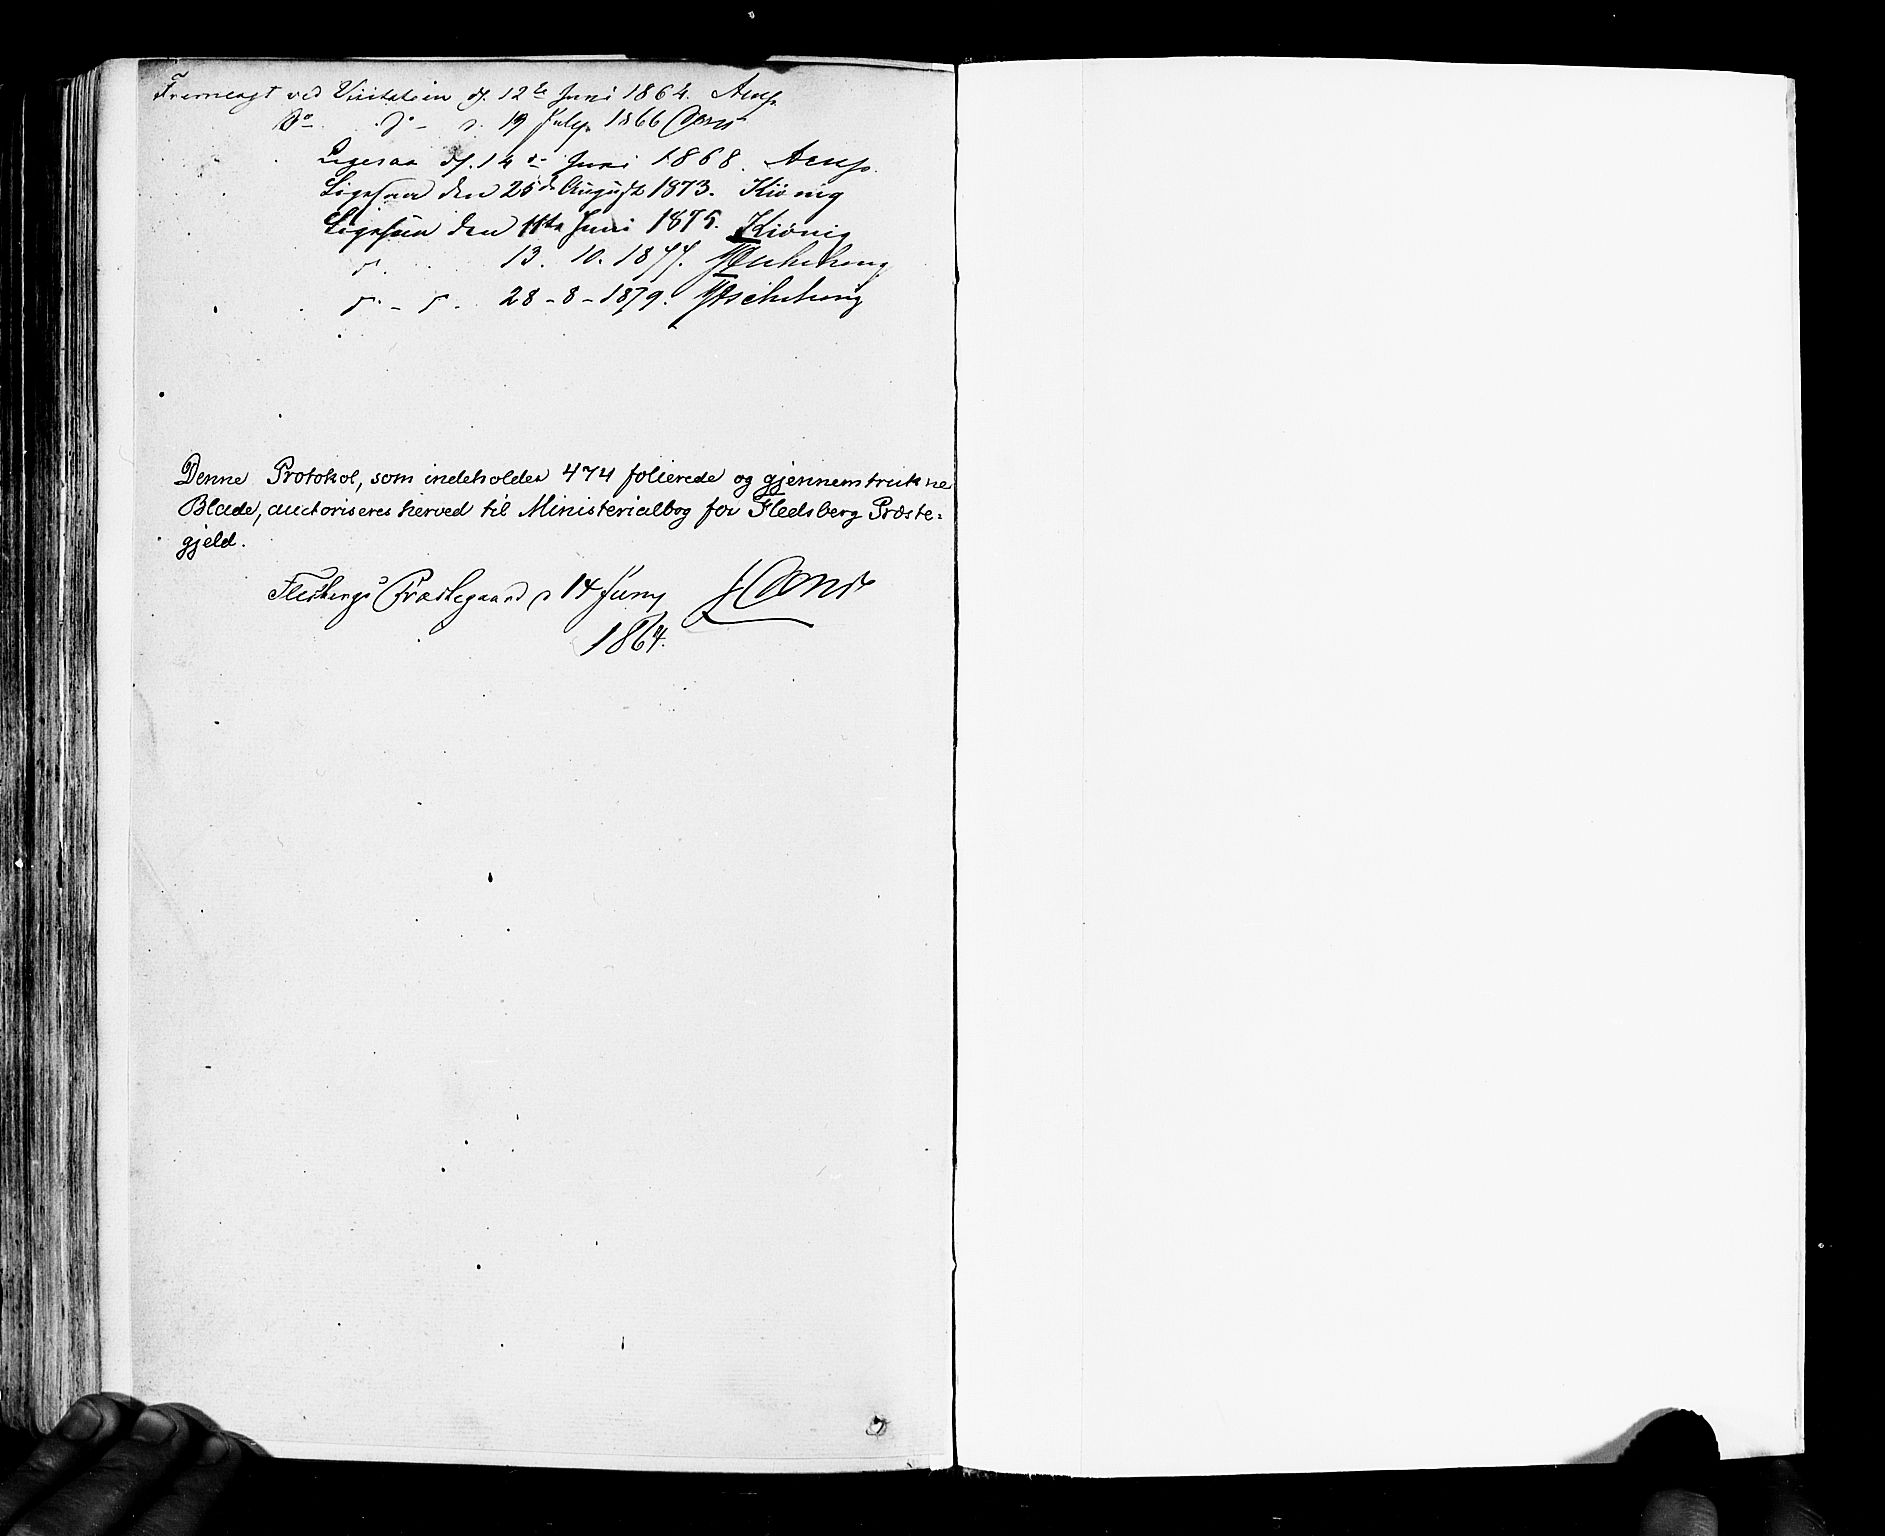 Fremlagt ved Visitatsen d. 12te Juni 1864. Arup.
Do do - d. 19 July 1866
Ligesaa d. 14de Juni 1868. Arup.
Ligesaa den 25de August 1873. Kiønig
Ligesaa den 11te Juni 1875. Kiønig
d. 13. 10. 1877. Aschehoug
d. - d. 28 - 8 - 1879. Aschehoug
Denne Protokol, som indeholder 474 folierede og gjennemtrukne
Blade, auctoriseres herved til Ministerialbog for Flesberg Præste-
gjeld.
Flesbergs Præstegaard d 14 Juny
1864.